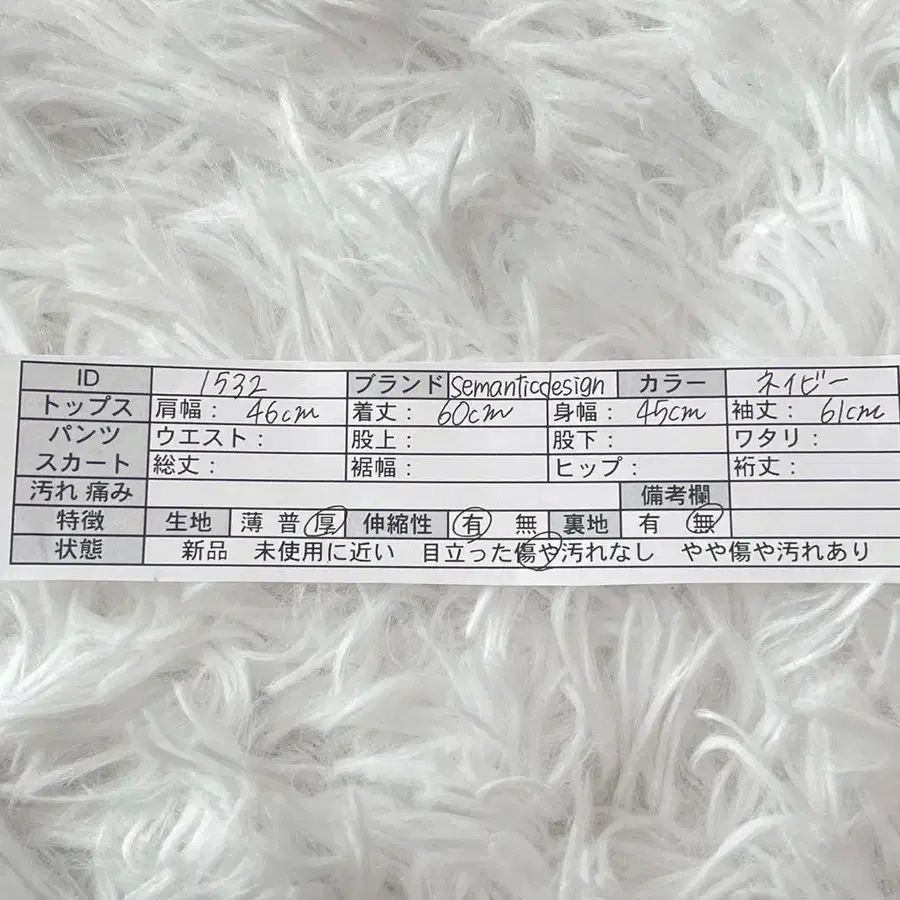 ID 1532 ブランド semanticdesign カラー ネイビー
トップス 肩幅： 46cm 着丈： 60cm 身幅： 45cm 袖丈： 61cm
パンツ ウエスト： 股上： 股下： ワタリ：
スカート 総丈： 裾幅： ヒップ： 裄丈：
汚れ 痛み 備考欄
特徴 生地 薄 普 厚 伸縮性 有 無 裏地 有 無
状態 新品 未使用に近い 目立った傷や汚れなし やや傷や汚れあり